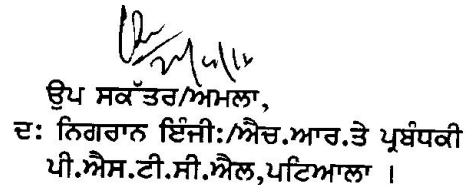 ਉਪ ਸਕੱਤਰ/ਅਮਲਾ,
ਦ: ਨਿਗਰਾਨ ਇੰਜੀ:/ਐਚ.ਆਰ.ਤੇ ਪ੍ਰਬੰਧਕੀ
ਪੀ.ਐਸ.ਟੀ.ਸੀ.ਐਲ,ਪਟਿਆਲਾ ।